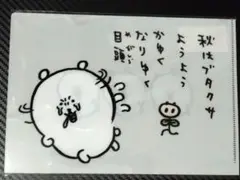 秋はブタクサ
ようよう
かゆく
なりゆく
めがしら
目頭